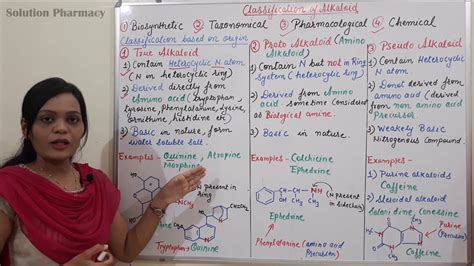 Solution Pharmacy
Classification of Alkaloid
① Biosynthetic ② Taxonomical ③ Pharmacological ④ Chemical
Classification based on origin
1. True Alkaloid
1) Contain Heterocyclic N atom
(N in heterocyclic ring)
2) Derived directly from
Amino acid (tryptophan,
tyrosine, Phenylalanine, Lysine,
ornithine, histidine etc)
3) Basic in nature, form
water soluble salt.
Examples - Quinine, Atropine
Morphine
HO
NCH₃
HO
N Present in
ring
Tryptophan → Quinine
2. Proto Alkaloid (Amino
Alkaloid)
1) Contain N but not in Ring
System (heterocyclic ring)
2) Derived from Amino
acid. sometime considered
as Biological amine.
3) Basic in nature.
Examples - Colchicine
Ephedrine
NH
(N present in
sidechain)
Ephedrine
Phenylalanine (amino acid
Precursor)
3. Pseudo Alkaloid
1) Contain Heterocyclic
N atom.
2) Donot derived from
amino acid (derived
from non amino acid
Precursor)
3) Weakely Basic
Nitrogenous Compound.
Examples -
1) Purine alkaloids
Caffeine
2) Steroidal alkaloid
Solanidine, Conessine
Purine
Caffeine